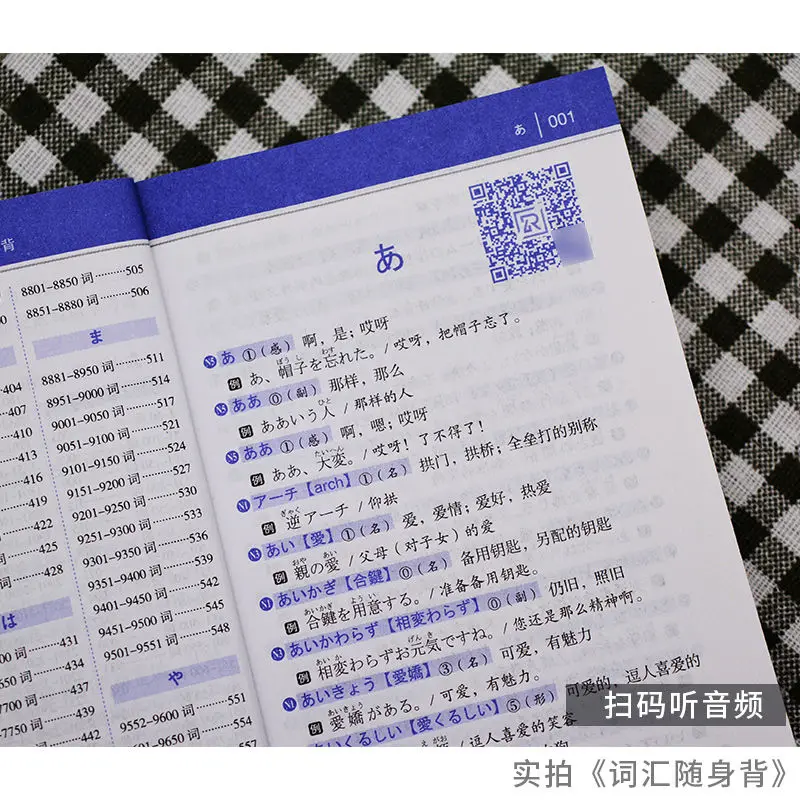 背
8801-8850 词………505
8851-8880 词………506
ま
8881-8950 词………511
8951-9000 词………514
9001-9050 词………517
9051-9100 词………521
9101-9150 词………524
9151-9200 词………527
9201-9250 词………530
9251-9300 词………533
9301-9350 词………536
9351-9400 词………539
9401-9450 词………542
9451-9500 词………545
9501-9551 词………548
や
9552-9600 词………551
9650 词………554
404
407
410
413
416
419
422
425
428
は
00 词………431
7650 词………434
7700 词………437
7750 词………439
442
あ | 001
あ
N5 あ ①(感) 啊，是；哎呀
例 あ、帽子を忘れた。/ 哎呀，把帽子忘了。
N5 ああ ⓪(副) 那样，那么
例 ああいう人 / 那样的人
N5 ああ ①(感) 啊，嗯；哎呀
例 ああ、大変。/ 哎呀！了不得了！
N1 アーチ【arch】①(名) 拱门，拱桥；全垒打的别称
例 逆アーチ / 仰拱
N3 あい【愛】①(名) 爱，爱情；爱好，热爱
例 親の愛 / 父母（对子女）的爱
N1 あいかぎ【合鍵】⓪(名) 备用钥匙，另配的钥匙
例 合鍵を用意する。/ 准备备用钥匙。
あいかわらず【相変わらず】⓪(副) 仍旧，照旧
例 相変わらずお元気ですね。/ 您还是那么精神啊。
N1 あいきょう【愛嬌】③(名) 可爱，有魅力
例 愛嬌がある。/ 可爱，有魅力。
あいくるしい【愛くるしい】⑤(形) 可爱的，逗人喜爱的
/ 逗人喜爱的笑容
扫码听音频
实拍《词汇随身背》